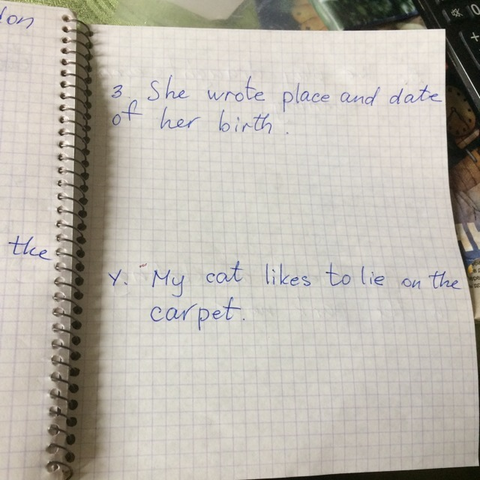 don
the
3. She wrote place and date
of her birth.
Y. My cat likes to lie on the
carpet.